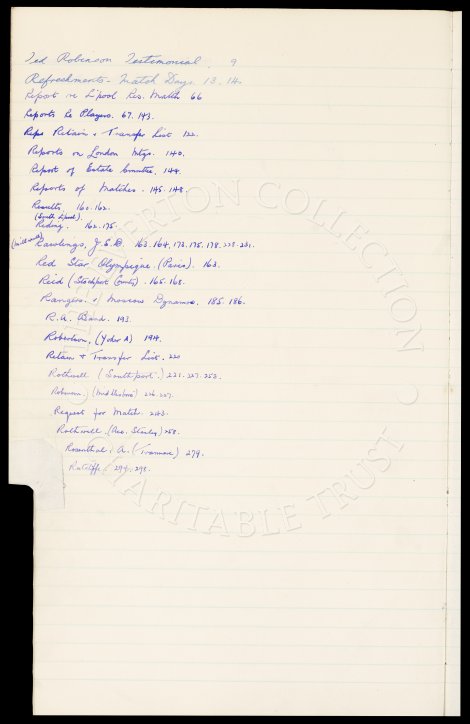 Ted Robinson Testimonial. 9
Refreshments - Match Days. 13. 14.
Report re L'pool. Res. Match 66
Reports Re Players. 67. 143.
Reps Retain & Transfer List 122.
Reports on London Mtgs. 140.
Report of Estate Committee, 144.
Reports of Matches. 145. 148.
Results, 160. 162.
(South L'pool).
Reding. 162. 175.
(Millwall) Rawlings, J.S.D. 163. 164, 173. 175. 178. 229. 231.
Red Star Olympique. (Paris). 163.
Reid (Stockport County). 165. 168.
Rangers v Moscow Dynamo. 185. 186.
R.A. Band. 193.
Robertson, (Yoker A) 194.
Retain & Transfer List. 220
Rothwell (Southport.) 221. 227. 253.
Robinson. (Middlesboro') 226. 227.
Request for Match. 243.
Rothwell. (Acc. Stanley) 258.
Rosenthal. A. (Tranmere) 279.
Ratcliffe. 294. 298.
THE EVERTON COLLECTION
CHARITABLE TRUST